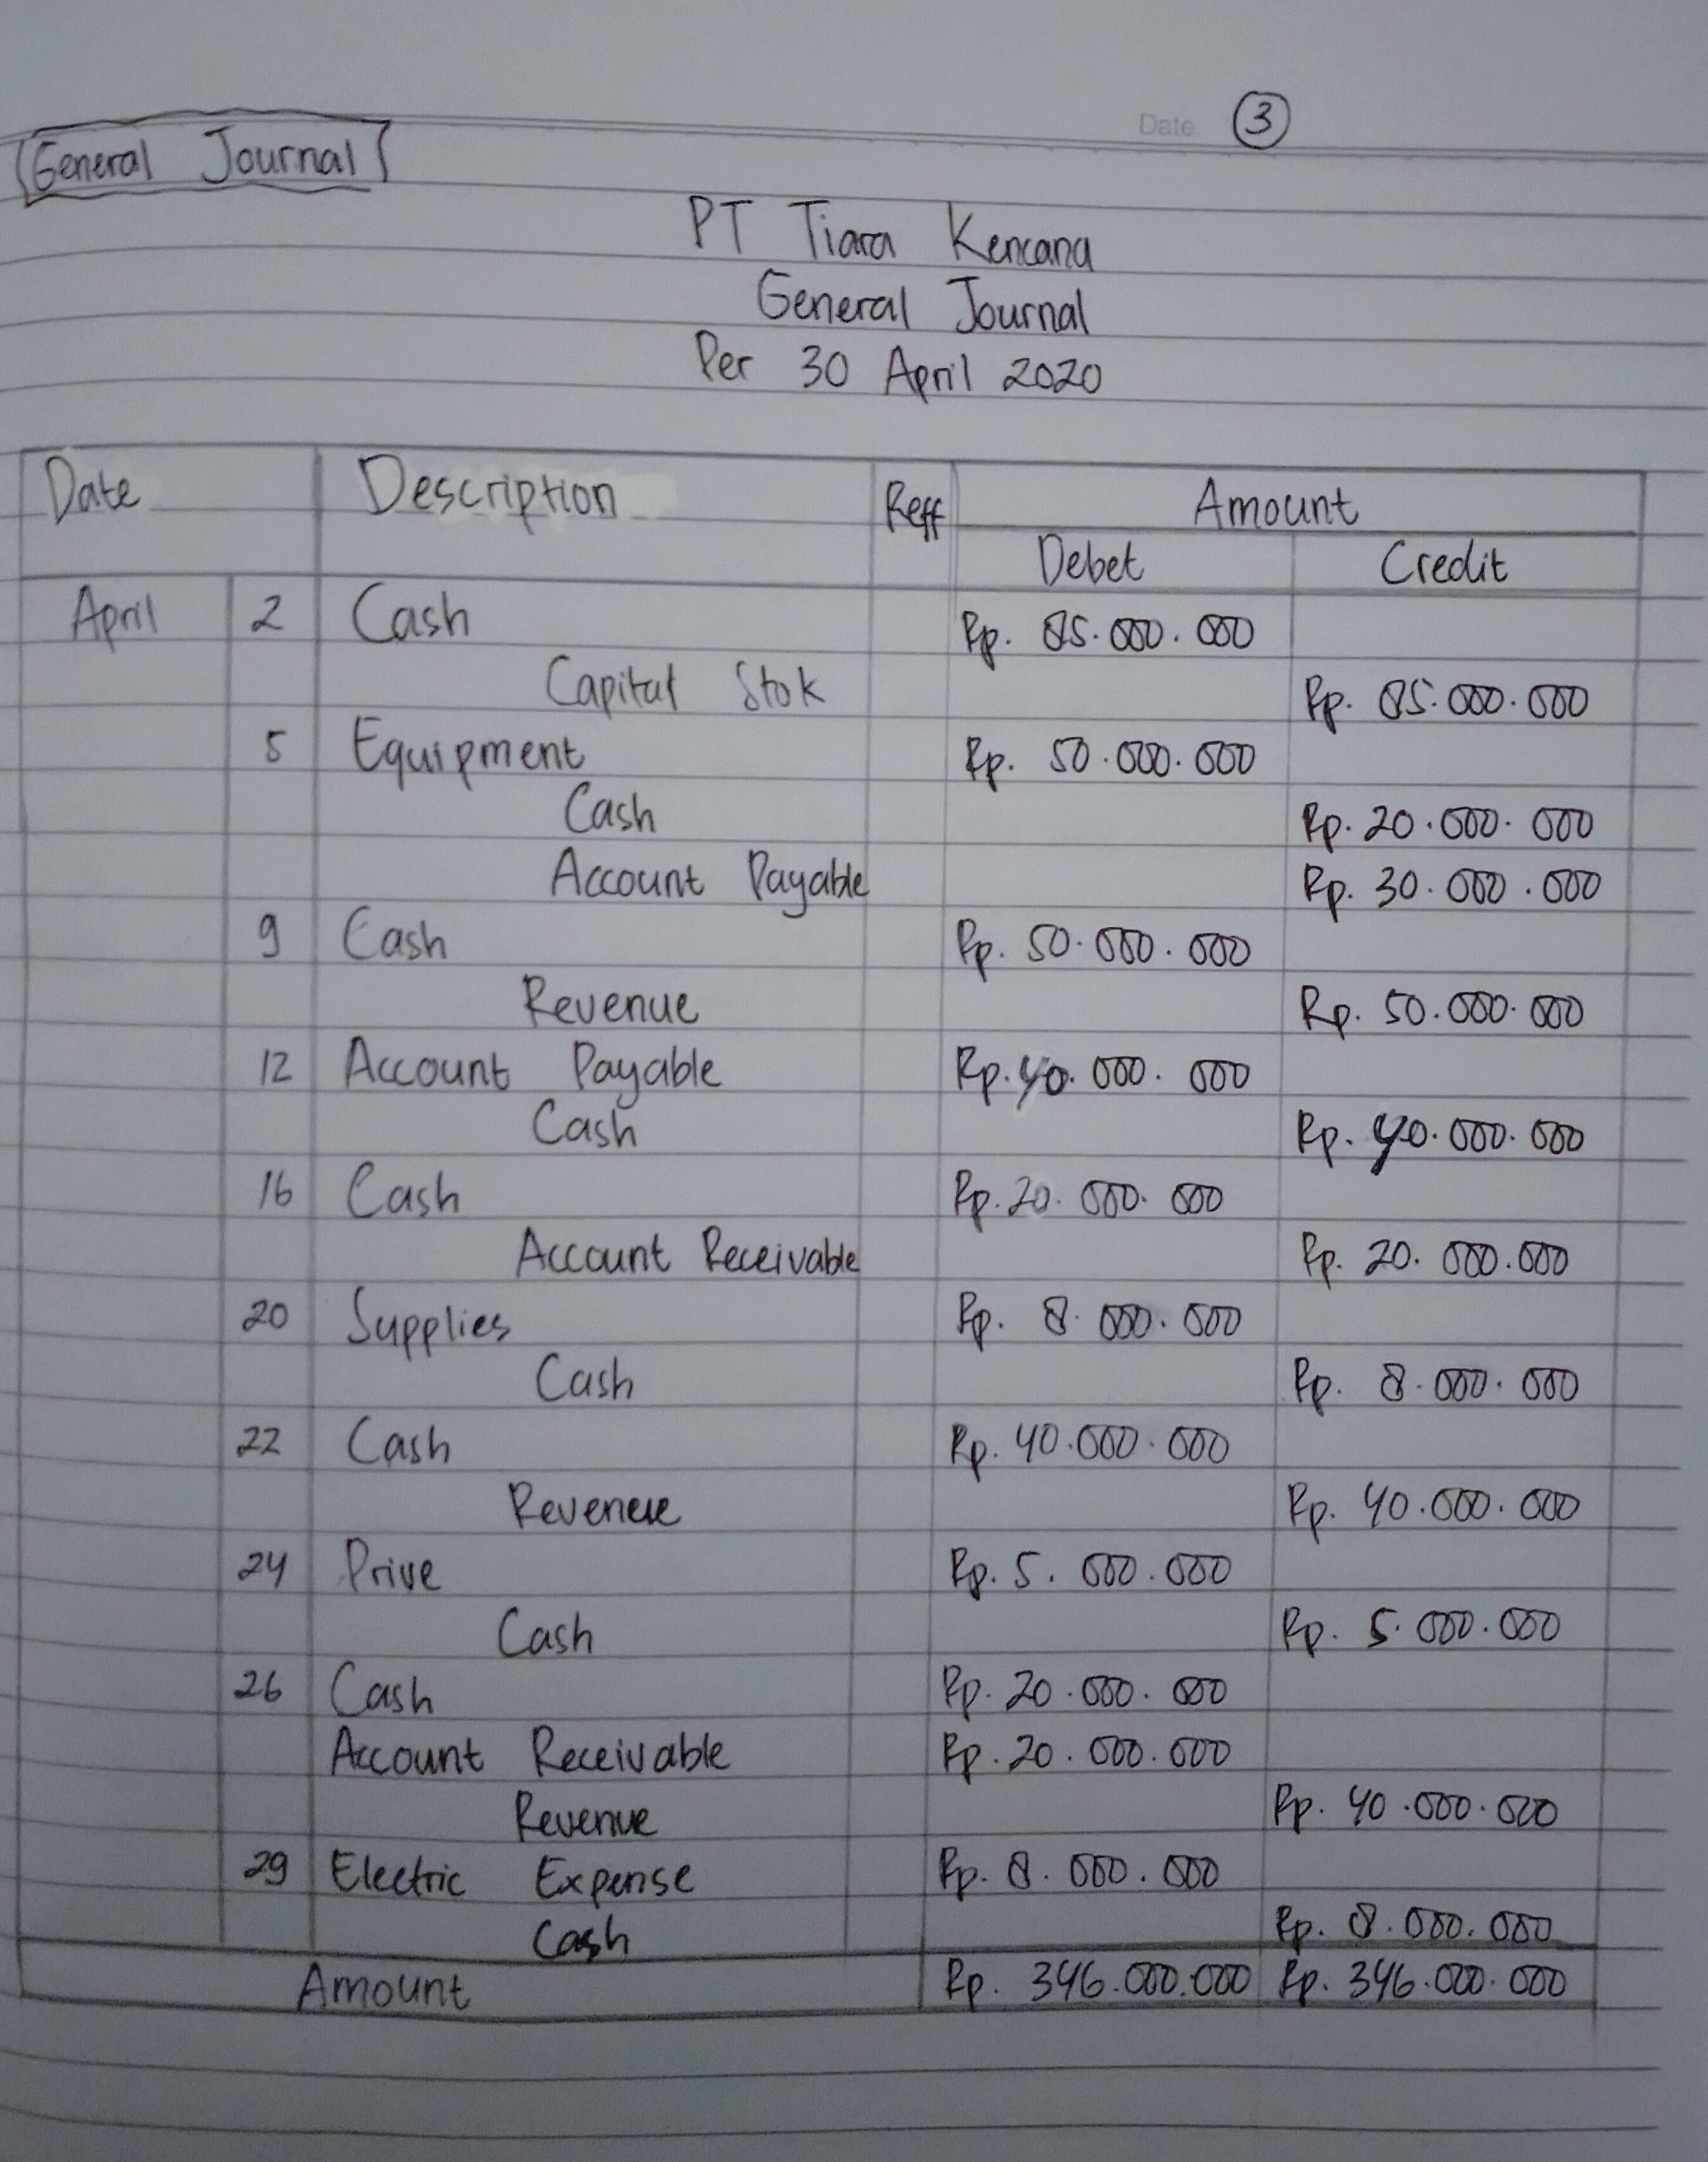 Date 3
General Journal
PT Tiara Kencana
General Journal
Per 30 April 2020
Date Description Reff Amount
Debet Credit
April 2 Cash Rp. 85.000.000
Capital Stok Rp. 85.000.000
5 Equipment Rp. 50.000.000
Cash Rp. 20.000.000
Account Payable Rp. 30.000.000
9 Cash Rp. 50.000.000
Revenue Rp. 50.000.000
12 Account Payable Rp. 40.000.000
Cash Rp. 40.000.000
16 Cash Rp. 20.000.000
Account Receivable Rp. 20.000.000
20 Supplies Rp. 8.000.000
Cash Rp. 8.000.000
22 Cash Rp. 40.000.000
Revenue Rp. 40.000.000
24 Prive Rp. 5.000.000
Cash Rp. 5.000.000
26 Cash Rp. 20.000.000
Account Receivable Rp. 20.000.000
Revenue Rp. 40.000.000
29 Electric Expense Rp. 8.000.000
Cash Rp. 8.000.000
Amount Rp. 346.000.000 Rp. 346.000.000